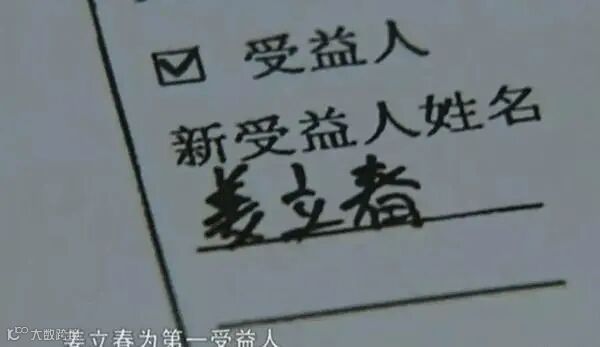 受益人
新受益人姓名
姜立春
姜立春为第一受益人
大数跨境